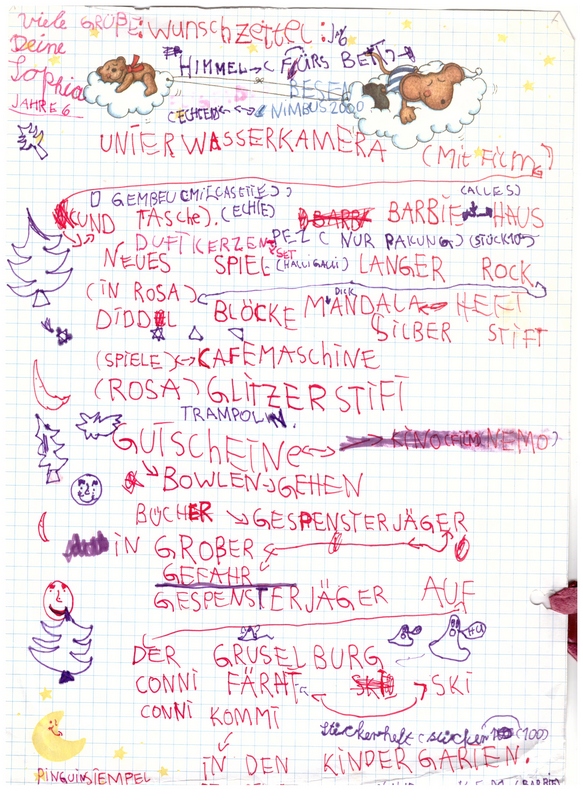 Viele GRÜßE:
Deine
Sophia
JAHRE 6
:wunschzettel:
HIMMEL FÜRS BETT
BESEN
(ECHTER) NIMBUS 2000
UNTERWASSERKAMERA (Mit FiLM)
GEMBEU (MiCASETIE)) (ALLES)
UND TAsche). (ECHTE) BARBIE HAUS
DUFTKERZEN PELZ ( NUR PAKUNG) (STÜCK 10)
SET
NEUES SPIEL (HALLIGALLI) LANGER ROCK
(iN ROSA)
DIDDL BLÖCKE DICK MANDALA HEFT
SILBER STIFT
(SPiELE) KAFEMASCHINE
(ROSA) GLITZERSTIFT
TRAMPOLIN.
GUTScHEiNE KiNO (FiLM) NEMO)
BOWLEN GEHEN
BÜCHER GESPENSTERJÄGER
iN GROBER
GEFAHR
GESPENSTERJÄGER AUF
DER GRUSELBURG
HU
CONNi FÄRHT SKI
CONNi KOMMT
Stickerheft (sticker (100)
iN DEN KiNDERGARTEN.
PiNGUiNSTEMPEL